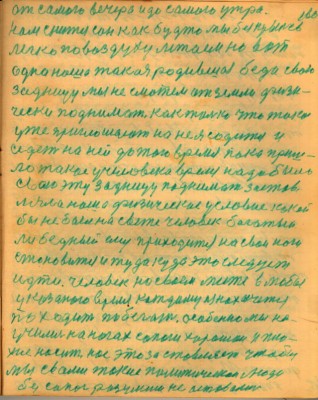 от самого вечера и до самого утра.
нам снится сон как будто мы бы крылев
легко по воздуху летаим но вот
одна наша такая родимыя беда свою
задницу мы не сможем от земли физи-
чески поднимат. как толко что тако
уже приглошают на нея содится и
седет на ней до того время пока пришло
такое у человека время надо было
свою эту задницу поднимат заетов
ляла нашо физическое условие какой
бы не был на свете человек богатый
ли бедный ему приходится на свои ноги
становится и туда куда это следует
идти. человек на своём месте в любое
указаного время каждому
походит побегает. особенно мы на
учили на ногах сапоги хорошии и
же носит. нас это заставляет чтобы
мы с вами такие политический люди
без сапог разумии не оставалис